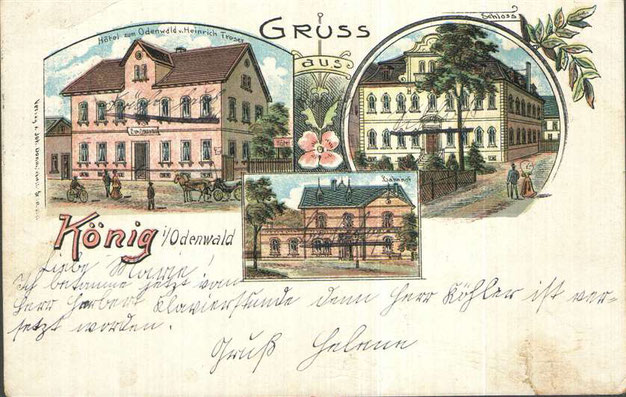 GRUSS
aus
Hôtel zum Odenwald v. Heinrich Treser
Schloss
Bahnhof
König i/Odenwald
Liebe Marie!
Ich bekomme jetzt von
Herr Herbert Klavierstunde denn Herr Köhler ist ver-
setzt worden.
Gruß Helene